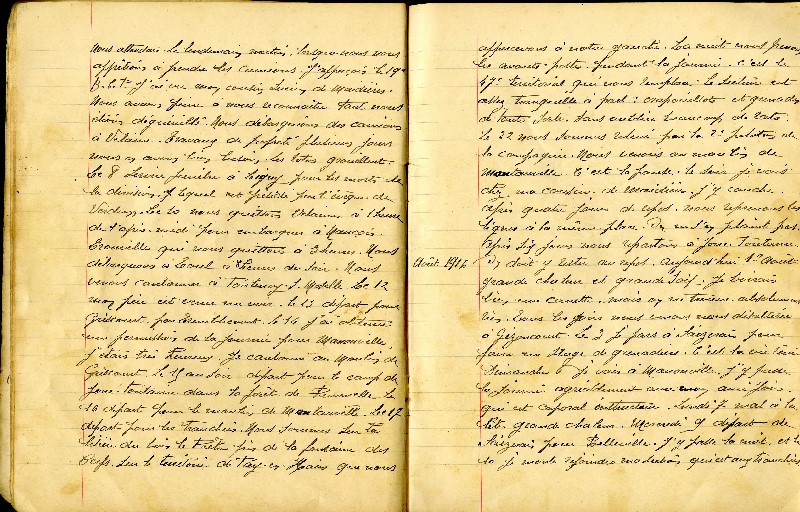 nous attendais. Le lendemain matin, lorsque nous nous
apprêtons à prendre les camions j'apperçois le 19e
B.C.P. J'ai vu mon cousin Lucien de Maidières.
Nous avons peine à nous reconnaître tant nous
étions déguenillés. Nous débarquons des camions
à Velaine. Travaux de propreté plusieurs jours
nous en avons bien besoin, les totos grouillent.
Le 8 Service funèbre à pour les morts de
la division, lequel est présidé par l'évêque de
Verdun. Le 10 nous quittons Velaines à 1 heure
de l'après-midi pour embarquer à Nançois-
Tronville que nous quittons à 3 heures. Nous
débarquons à Toul à heures du soir. Nous
venons cantonner à Fontenoy s. Moselle. Le 12
mon père est venu me voir. Le 13 départ pour
Griscourt, par Le 14 j'ai obtenu
une permission de la journée pour Manonville
j'étais très heureux. Je cantonne au Moulin de
Griscourt. Le 15 au soir départ pour le camp de
Jaure-fontaine dans la forêt de le
16 départ pour le moulin de Mantauville. Le 17
départ pour les tranchées. Nous sommes sur la
lisière du bois le Prêtre près de la fontaine des
sur le territoire de Fay-en-Haie que nous
appercevons à notre gauche. La nuit nous prenons
les avants-postes pendant la journée c'est le
47e territorial qui nous remplace. Le Secteur est
assez tranquille à part: crapouillots et grenades
de toute sorte. Sans oublier beaucoup de rats.
Le 22 nous sommes relevés par le 2e peloton de
la compagnie. Nous venons au moulin de
Mantauville. C'est la fraude. Le soir je vais
chez ma cousine de Maidières j'y couche.
Après quatre jours de repos, nous reprenons les
lignes à la même place. On ne s'y plaint pas.
Après Six jours nous repartons à Jaure fontaine.
On doit y rester au repos. Aujourd'hui 1er Août
Août 1916.
grande chaleur et grande soif. Je boirais
bien une canette, mais on ne trouve absolument
rien. Tous les jours nous venons nous désaltérer
à Gézoncourt. Le 3 je pars à Saizerais pour
faire un stage de grenadiers. C'est la vie
Dimanche je vais à Manonville. J'y passe
la journée agréablement avec mon ami
qui est caporal Lundi 7 mal à la
tête, grande chaleur. Mercredi 9 départ de
Saizerais pour Belleville. J'y passe la nuit, et le
10 je monte rejoindre ma section qui est aux tranchées